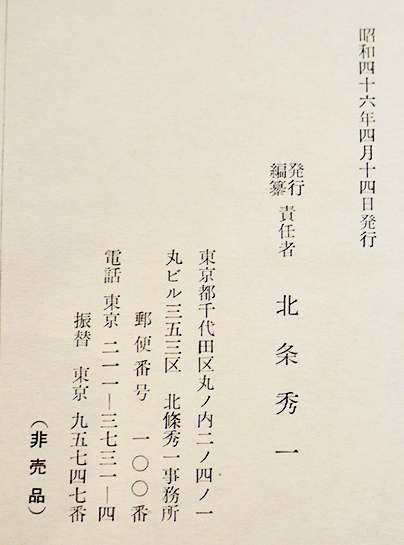 昭和四十六年四月十四日発行
発行
編纂
責任者 北条秀一
東京都千代田区丸ノ内二ノ四ノ一
丸ビル三五三区 北條秀一事務所
郵便番号 一〇〇番
電話 東京 二一一―三七三一―四
振替 東京 九五七四七番
(非売品)